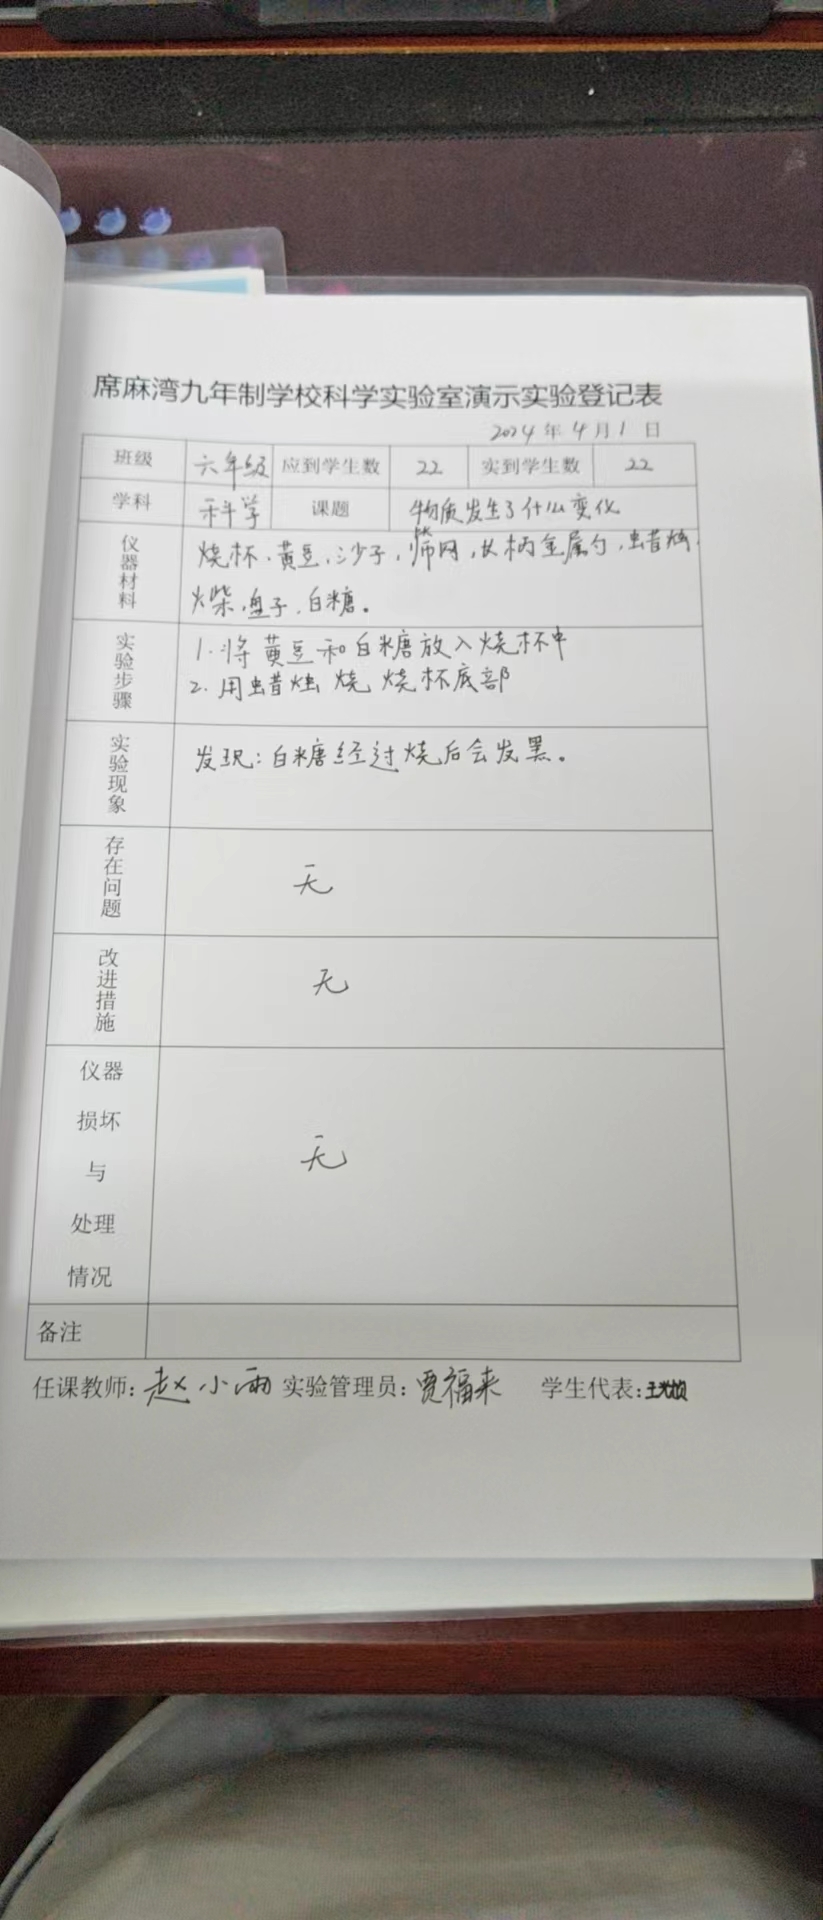 席麻湾九年制学校科学实验室演示实验登记表
2024年4月1日
班级 六年级 应到学生数 22 实到学生数 22
学科 科学 课题 物质发生了什么变化
仪器材料 烧杯、黄豆、沙子、筛网、长柄金属勺、蜡烛、
火柴、盘子、白糖。
实验步骤 1.将黄豆和白糖放入烧杯中
2.用蜡烛烧烧杯底部
实验现象 发现:白糖经过烧后会发黑。
存在问题 无
改进措施 无
仪器
损坏
与
处理
情况
无
备注
任课教师:赵小雨 实验管理员:贾福来 学生代表: